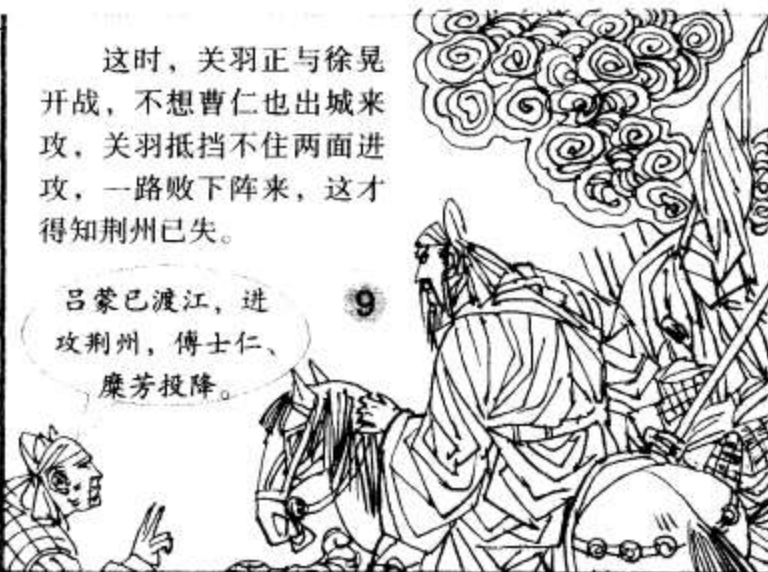 这时，关羽正与徐晃
开战，不想曹仁也出城来
攻，关羽抵挡不住两面进
攻，一路败下阵来，这才
得知荆州已失。
9
吕蒙已渡江，进
攻荆州，傅士仁、
糜芳投降。